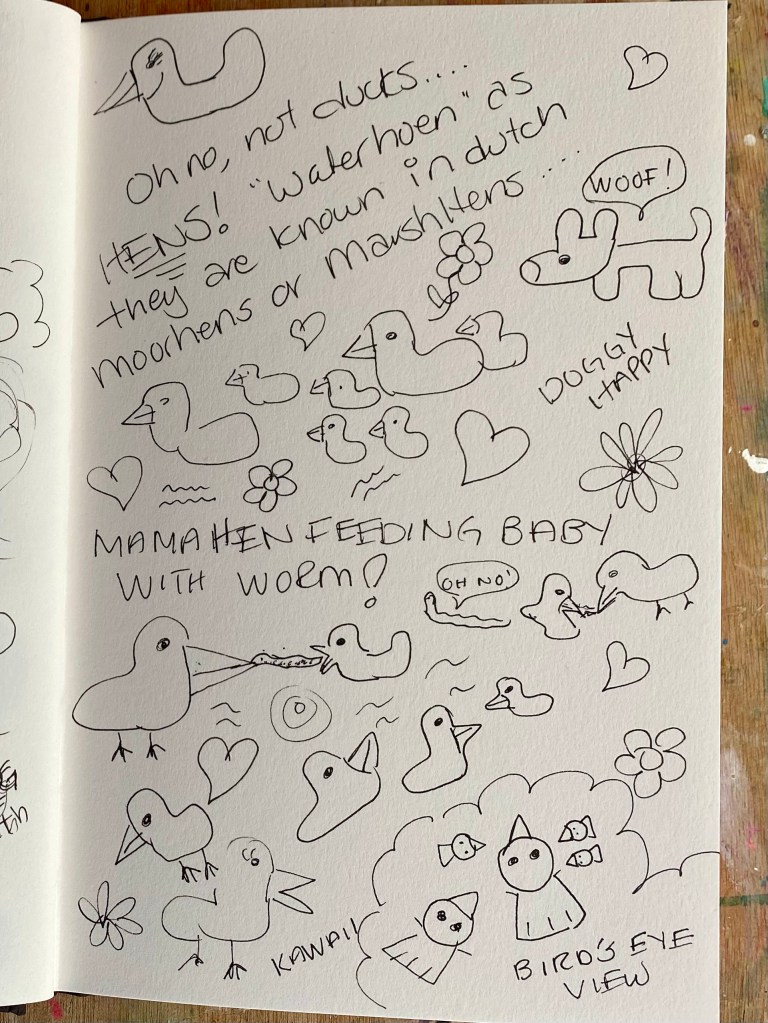 Oh no, not ducks....
HENS! "Waterhoen" as
they are known in dutch
moorhens or MarshHens....
WOOF!
DOGGY
HAPPY
MAMA HEN FEEDING BABY
WITH WORM!
OH NO!
KAWAII
BIRD'S EYE
VIEW